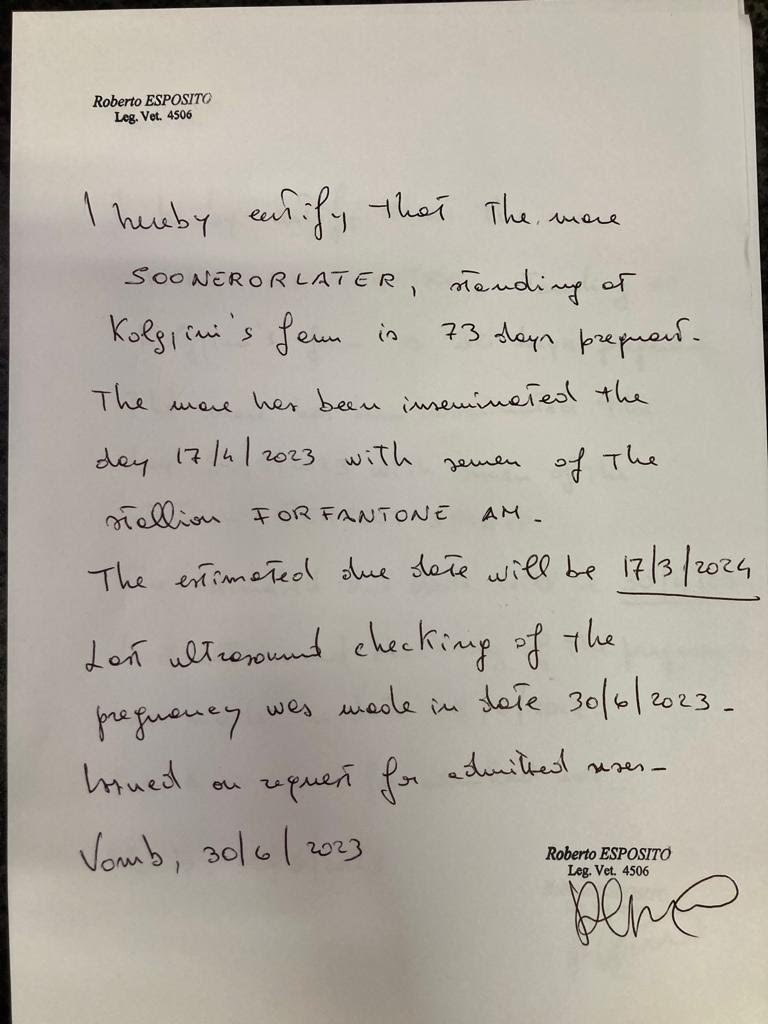 Roberto ESPOSITO
Leg. Vet. 4506
I hereby certify that the mare
SOONERORLATER, standing at
Kolgjini's farm is 73 days pregnant.
The mare has been inseminated the
day 17/4/2023 with semen of the
stallion FORFANTONE AM.
The estimated due date will be 17/3/2024
Last ultrasound checking of the
pregnancy was made in date 30/6/2023.
Issued on request for admitted uses.
Vomb, 30/6/2023
Roberto ESPOSITO
Leg. Vet. 4506